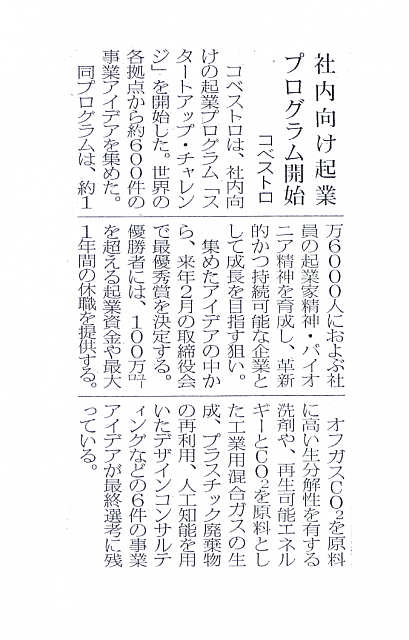 社内向け起業
プログラム開始
コベストロ
コベストロは、社内向
けの起業プログラム「ス
タートアップ・チャレン
ジ」を開始した。世界の
各拠点から約600件の
事業アイデアを集めた。
同プログラムは、約1
万6000人におよぶ社
員の起業家精神・パイオ
ニア精神を育成し、革新
的かつ持続可能な企業と
して成長を目指す狙い。
集めたアイデアの中か
ら、来年2月の取締役会
で最優秀賞を決定する。
優勝者には、100万㌆
を超える起業資金や最大
1年間の休職を提供する。
オフガスCO2を原料
に高い生分解性を有する
洗剤や、再生可能エネル
ギーとCO2を原料とし
た工業用混合ガスの生
成、プラスチック廃棄物
の再利用、人工知能を用
いたデザインコンサルテ
ィングなどの6件の事業
アイデアが最終選考に残
っている。